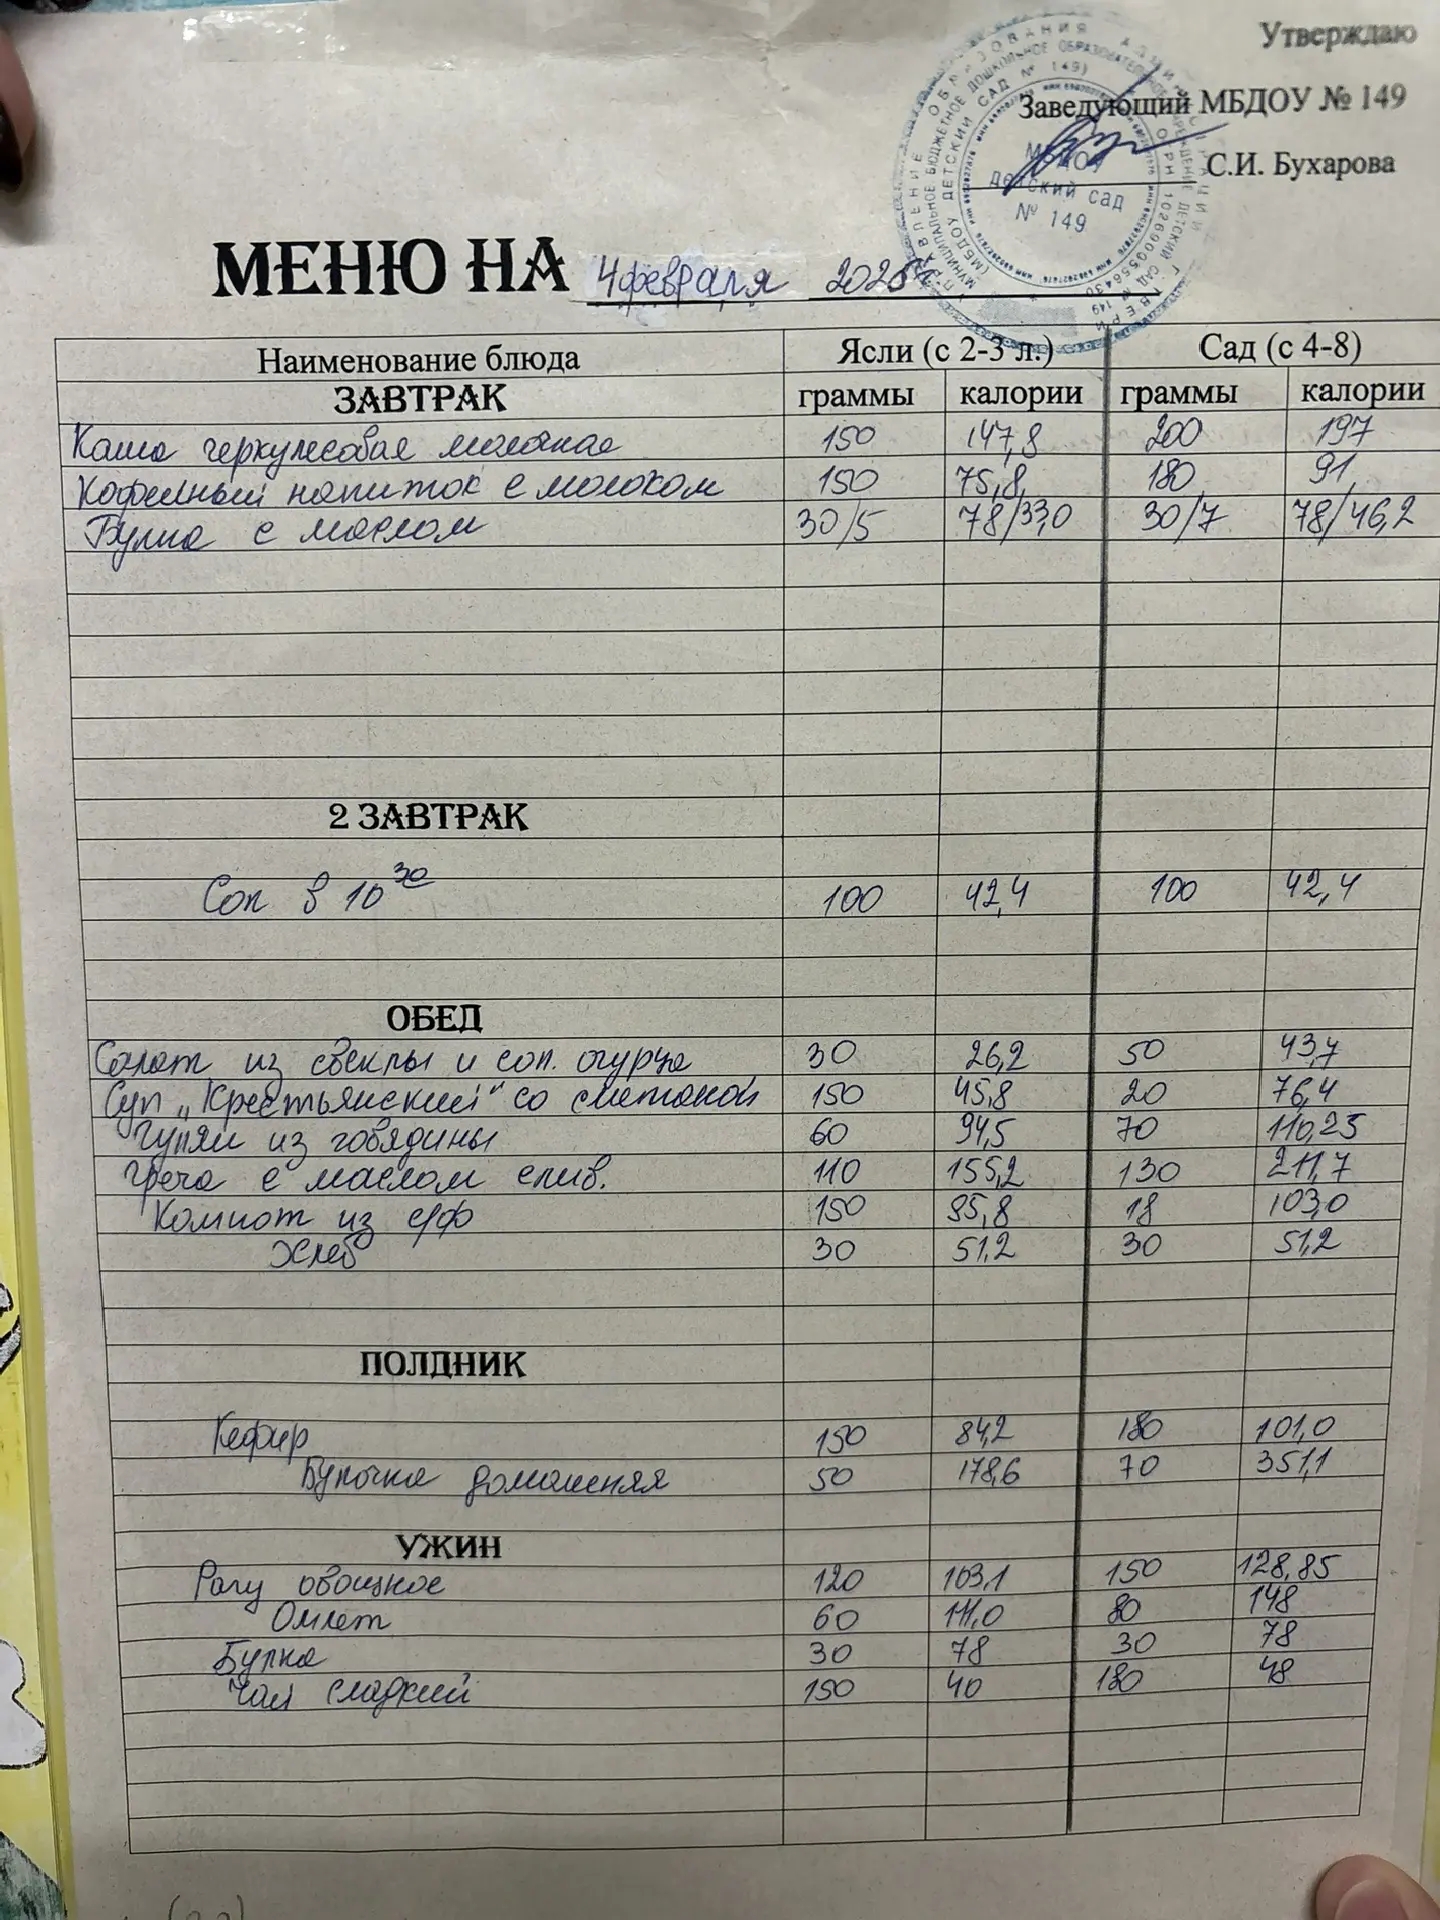 Утверждаю
Заведующий МБДОУ № 149
С.И. Бухарова
МБДОУ
детский сад
№ 149
МЕНЮ НА 4 февраля 2025г.
Наименование блюда Ясли (с 2-3 л.) Сад (с 4-8)
ЗАВТРАК граммы калории граммы калории
Каша геркулесовая молочная 150 147,8 200 197
Кофейный напиток с молоком 150 75,8 180 91
Булка с маслом 30/5 78/33,0 30/7 78/46,2
2 ЗАВТРАК
Сок в 10 30 100 42,4 100 42,4
ОБЕД
Салат из свеклы и сол. огурца 30 26,2 50 43,7
Суп „Крестьянский" со сметаной 150 45,8 20 76,4
Гуляш из говядины 60 94,5 70 110,25
Греча с маслом слив. 110 155,2 130 211,7
Компот из с/ф 150 85,8 18 103,0
Хлеб 30 51,2 30 51,2
ПОЛДНИК
Кефир 150 84,2 180 101,0
Булочка домашняя 50 178,6 70 351,1
УЖИН
Рагу овощное 120 103,1 150 128,85
Омлет 60 111,0 80 148
Булка 30 78 30 78
Чай сладкий 150 40 180 48